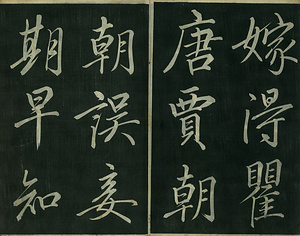 嫁得瞿
唐賈朝
朝誤妾
期早知